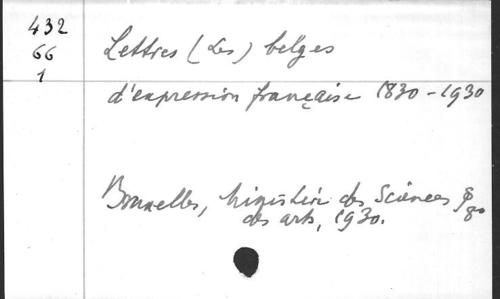 432
66
1
Lettres (Les) belges
d'expression française 1830-1930
Bruxelles, Ministère des Sciences &
des arts, 1930.